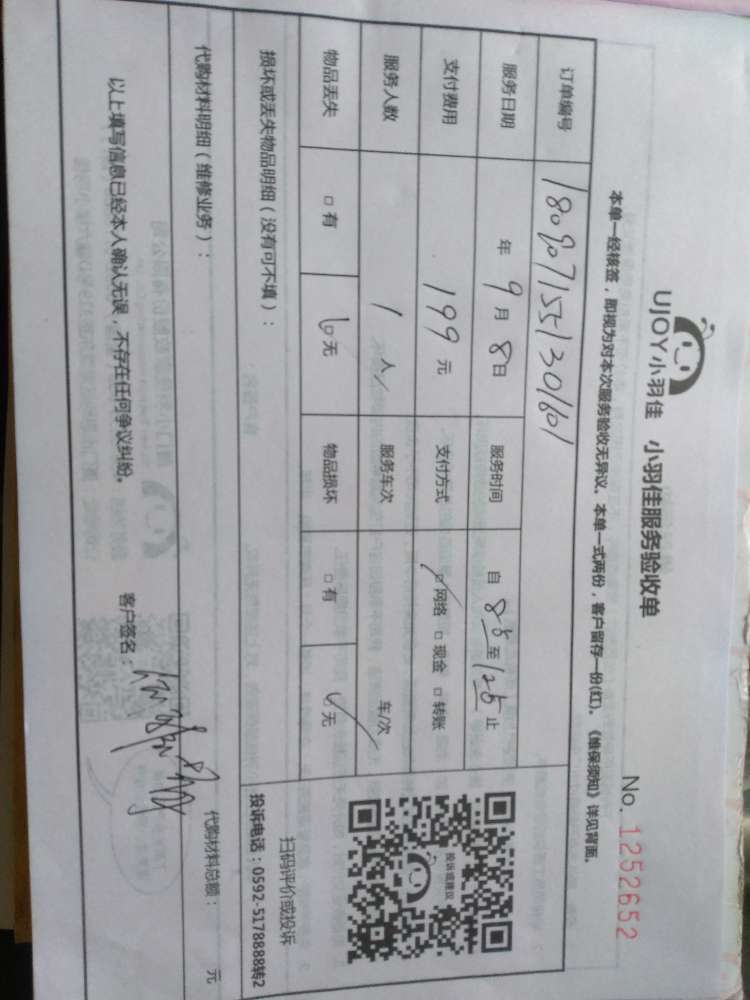 UJOY小羽佳 小羽佳服务验收单
No. 1252652
本单一经核签,即视为对本次服务验收无异议。本单一式两份,客户留存一份(红)。《维保须知》详见背面。
订单编号 1809071551301601
服务日期 年 9 月 8 日 服务时间 自 8:5 至 12:5 止
支付费用 199 元 支付方式 □网络 □现金 □转账
服务人数 1 人 服务车次 车/次
物品丢失 □有 □无 物品损坏 □有 □无
损坏或丢失物品明细(没有可不填):
投诉或建议
扫码评价或投诉
投诉电话:0592-5178888转2
代购材料明细(维修业务):
代购材料总额: 元
以上填写信息已经本人确认无误,不存在任何争议纠纷。 客户签名: